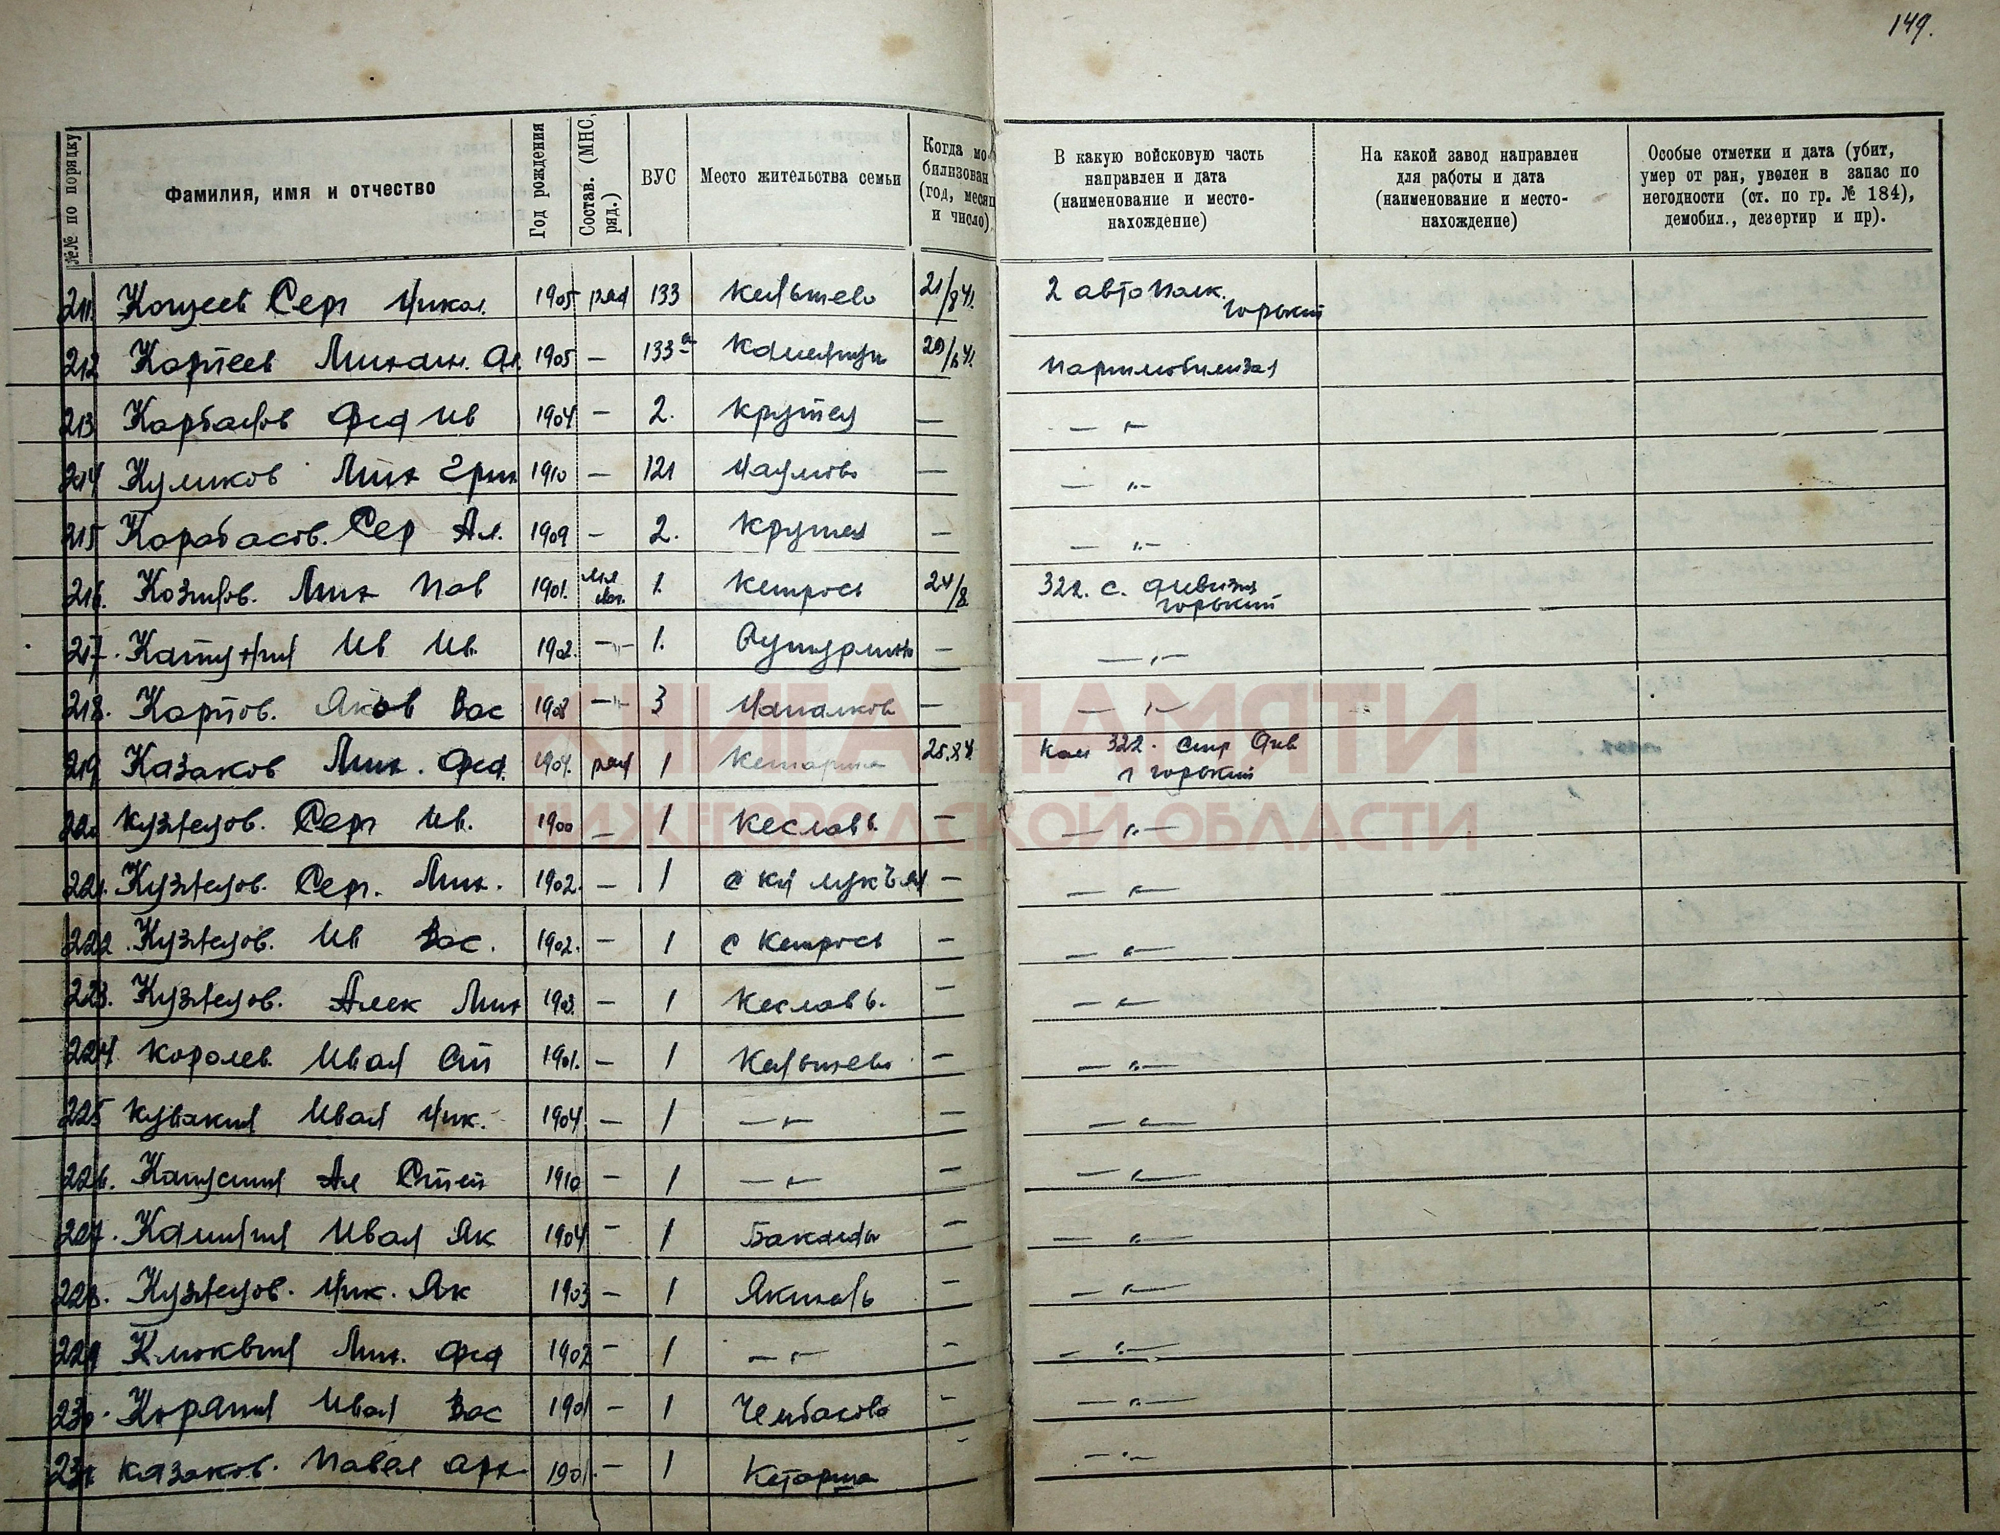 149.
№№ по порядку
Фамилия, имя и отчество
Год рождения
Состав. (МНС, ряд.)
ВУС
Место жительства семьи
Когда мобилизован (год, месяц и число)
В какую войсковую часть
направлен и дата
(наименование и место-
нахождение)
На какой завод направлен
для работы и дата
(наименование и место-
нахождение)
Особые отметки и дата (убит,
умер от ран, уволен в запас по
негодности (ст. по гр. № 184),
демобил., дезертир и пр).
211. Сер Никол. 1905 ряд 133 21/8 41. 2 автополк.
Горький
212 Карпеев Михаил. Ал. 1905 — 133а 29/6 41.
213 Карбасов Фед Ив 1904 — 2. Крутец — — " —
214 Куликов Мих Григ 1910 — 121 Наумово — — " —
215 Карабасов. Сер Ал. 1909 — 2. Крутец — — " —
216. Козлов. Мих Пав 1901. 1. Кетрось 24/8 322. с. дивизия
Горький
217. Ив Ив. 1902. — " — 1. — — " —
218. Карпов. Яков Вас 1908 — " — 3 —  — " —
КНИГА ПАМЯТИ
219 Казаков Мих. Фед. 1904. ряд 1 25.8 41 322. стр Див
г Горький
НИЖЕГОРОДСКОЙ ОБЛАСТИ
220 Кузнецов. Серг Ив. 1900 — 1 Кеславь — — " —
221. Кузнецов. Серг. Мих. 1902. — 1 — — " —
222. Кузнецов. Ив Вас. 1902. — 1 с Кетрось — — " —
223. Кузнецов. Алек Мих 1903. — 1 Кеславь. — — " —
224 Королев. Иван Ст 1901. — 1 — — " —
225 Кувакин Иван Ник. 1904. — 1 — " — — — " —
226. Капустин Ал Степ 1910 — 1 — " — — — " —
227. Иван Як 1904 — 1 Бакалды — — " —
228. Кузнецов. Ник. Як 1903 — 1 — — " —
229 Клюквин Мих. Фед 1902 — 1 — " — — — " —
230. Иван Вас 1901 — 1 Чембасово — — " —
231 Казаков. Павел 1901. — 1 Кетарша — — " —